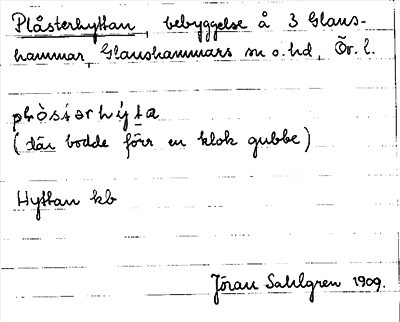 Plåsterhyttan, bebyggelse å 3 Glans-
hammar, Glanshammars sn o. hd, Ör. l.
(där bodde förr en klok gubbe)
Hyttan kb
Jöran Sahlgren 1909.